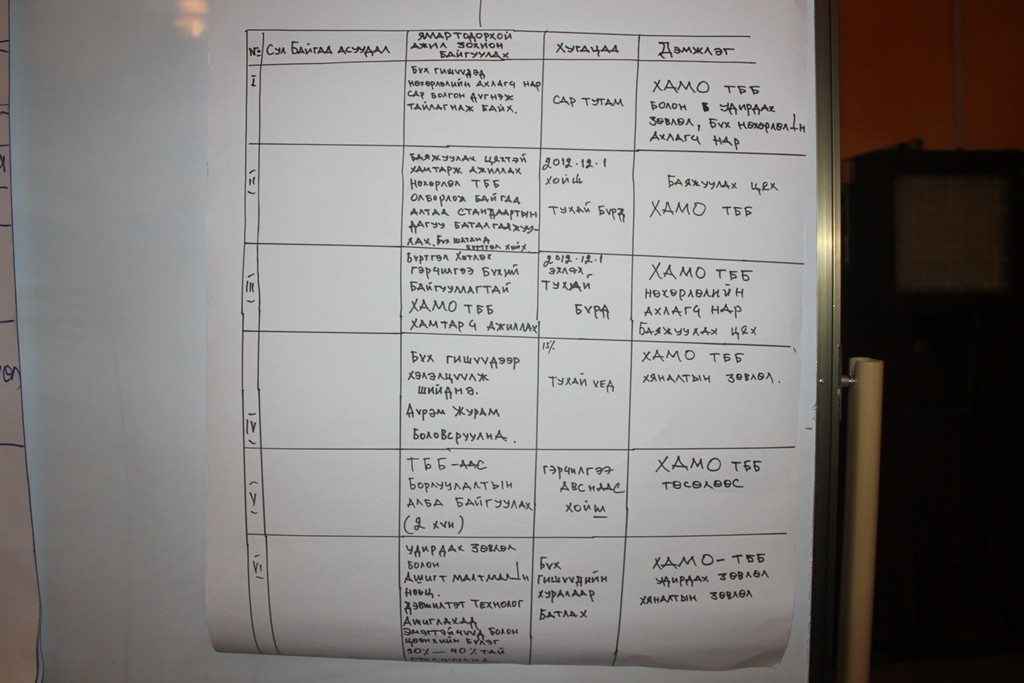 № Сул Байгаа асуудал
Ямар тодорхой
ажил зохион
байгуулах
Хугацаа
Дэмжлэг
I
Бүх гишүүдэд
нөхөрлөлийн ахлагч нар
сар болгон дүгнэж
тайлагнаж байх.
сар тутам
ХАМО ТББ
болон удирдах
зөвлөл, Бүх нөхөрлөлийн
Ахлагч нар
II
Баяжуулах цехтэй
хамтарж ажиллах
нөхөрлөл ТББ
олборлож байгаа
алтаа стандартын
дагуу баталгаажуу-
лах. Бүх шатанд
бүртгэл хийх
2012.12.1
хойш
тухай бүрд
Баяжуулах цех
ХАМО ТББ
III
Бүртгэл хөтлөх
гэрчилгээ бүхий
байгууллагтай
ХАМО ТББ
хамтарч ажиллах
2012.12.1
эхлэх
тухай
бүрд
ХАМО ТББ
нөхөрлөлийн
ахлагч нар
Баяжуулах цех
IV
Бүх гишүүдээр
хэлэлцүүлж
шийднэ.
Дүрэм журам
боловсруулна.
15%
тухай үед
ХАМО ТББ
хяналтын зөвлөл.
V
ТББ-аас
борлуулалтын
алба байгуулах
(2 хүн)
гэрчилгээ
авснаас
хойш
ХАМО ТББ
төсөлөөс
VI
удирдах зөвлөл
болон
Ашигт малтмалын
нөөц.
Дэвшилтэт технолог
ашиглахад
эмэгтэйчүүд болон
цөөнхийн бүлэг
30% — 40% тай
Бүх
гишүүдийн
хуралаар
батлах
ХАМО-ТББ
удирдах зөвлөл
хяналтын зөвлөл